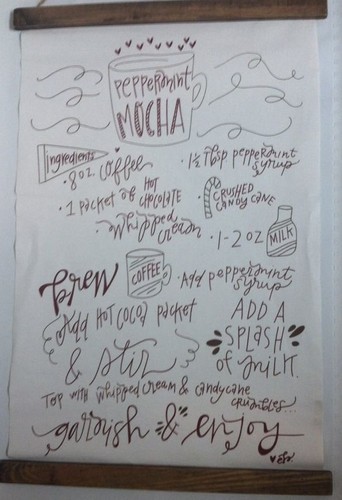 peppermint
MOCHA
Ingredients
• 8 oz. coffee
• 1½ Tbsp peppermint syrup
• 1 packet of HOT CHOCOLATE
CRUSHED CANDY CANE
• whipped cream
• 1-2 oz MILK
brew COFFEE
• Add peppermint syrup
Add HOT COCOA packet
& stir
ADD A
SPLASH
of MILK.
TOP WITH whipped cream & candy cane
crumbles...
garnish & enjoy